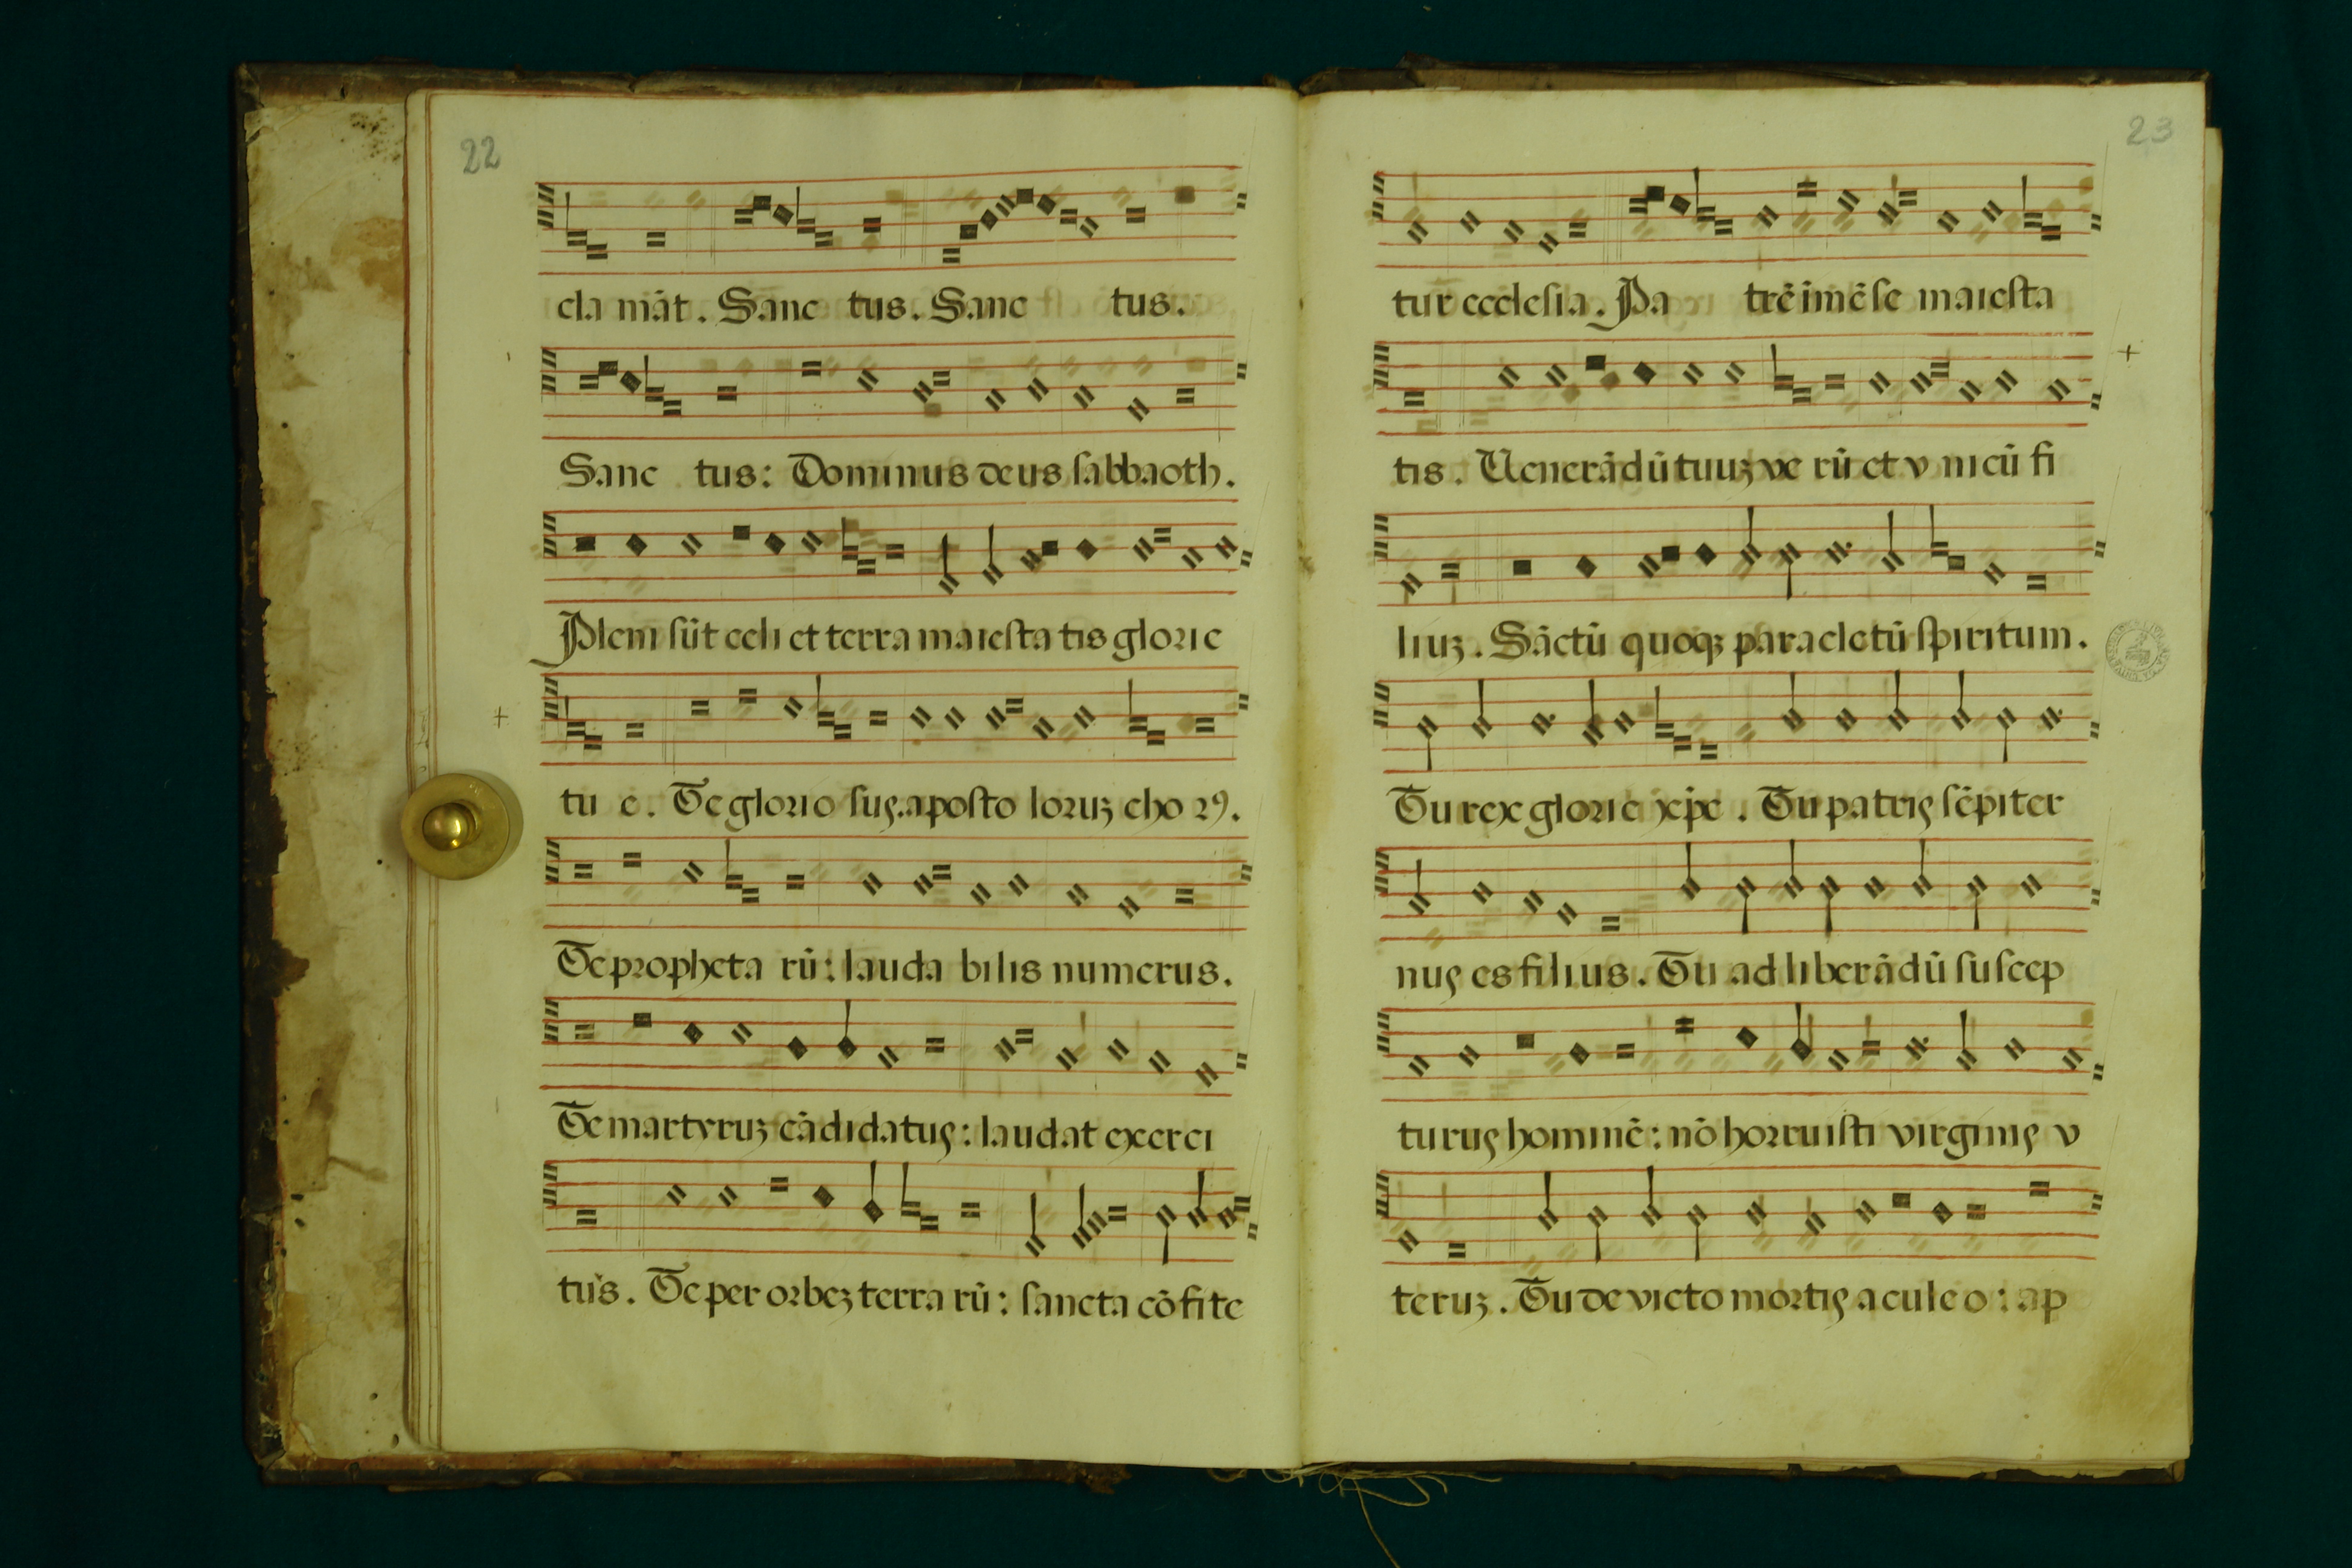 22
cla māt. Sanc tus. Sanc tus.
Sanc tus: Dominus deus ſabbaoth.
Pleni ſūt celi et terra maieſta tis glorie
tu e. Te glorio ſuꝯ. apoſto loruꝫ cho rꝰ.
Te propheta rū: lauda bilis numerus.
Te martyruꝫ cādidatuꝯ: laudat exerci
tus. Te per orbeꝫ terra rū: ſancta cōfite
23
tur eccleſia. Pa trē īmēſe maieſta
tis. Uenerādū tuuꝫ ve rū et v nicū fi
liuꝫ. Sāctū quoqꝫ paracletū ſpiritum.
Tu rex glorie xp̄e. Tu patriꝯ ſēpiter
nuꝯ es filius. Tu ad liberādū ſuſcep
turuꝯ hominē: nō horruiſti virginiꝯ v
teruꝫ. Tu de victo mortiꝯ a culeo: ap